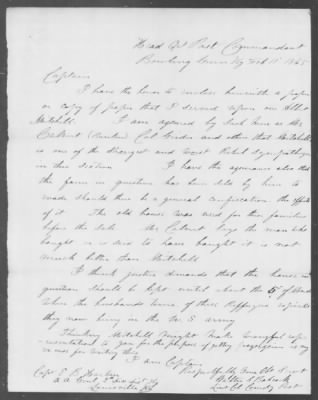 Head Qrs Post Commandant
Bowling Green Ky Feb 11" 1865
Captain
I have the honor to enclose herewith a paper
or copy of paper that I served upon one
Mitchell. I am assured by such men as Mr
(Banker) Col and others that Mitchell
is one of the strongest and worst Rebel Sympathizers
in this Section I have the assurance also that
the farm in question has been sold by him to
avoid should there be a general confiscation the effects
of it The old house was used for these families
before the sale Mr says the man who
bought or is said to have bought it is not
much better than Mitchell
I think justice demands that the house in
question should be kept until about the 5" of
when the husbands some of these refugees expire
they now being in the U S army
Thinking Mitchell might make wrongful rep-
resentation to you for the purpose of getting is my
excuse for writing this
I am Captain
Respectfully Your Obt Servt
Capt E B Harlan
A A Genl
Louisville Ky
Lieut Col Comdg Post